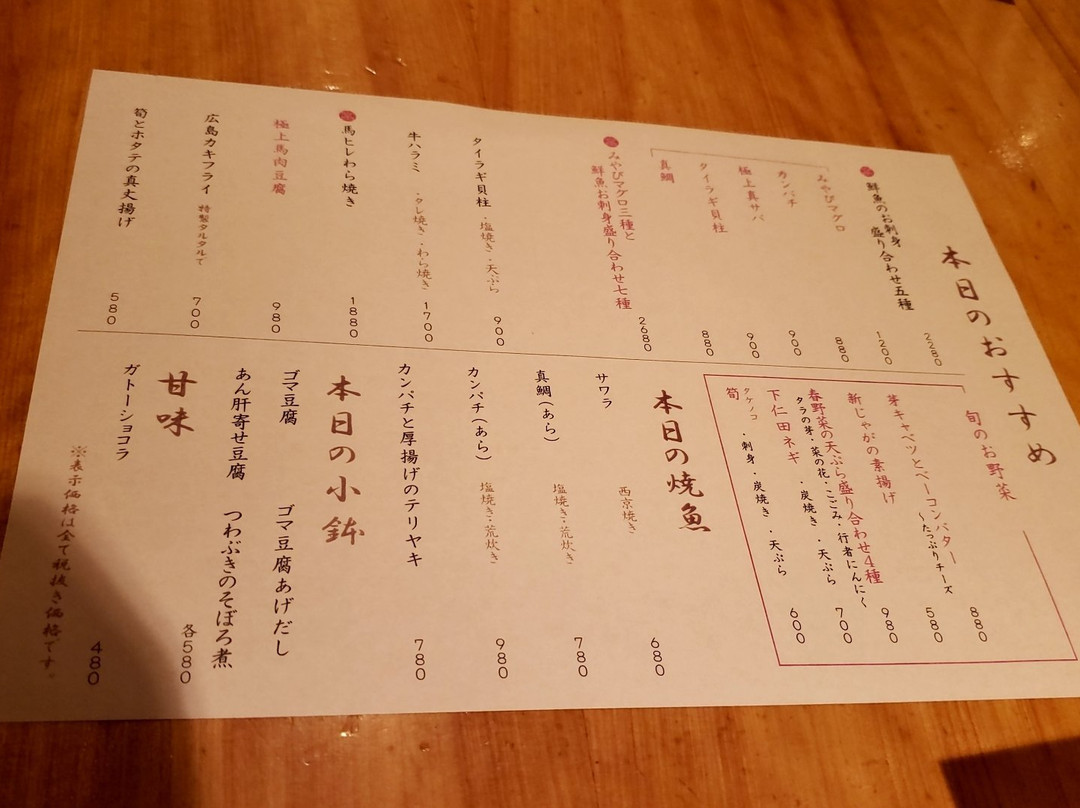 本日のおすすめ
鮮魚のお刺身
盛り合わせ五種
2280
みやびマグロ
1200
カンパチ
880
極上真サバ
900
タイラギ貝柱
900
真鯛
880
みやびマグロ三種と
鮮魚お刺身盛り合わせ七種
2680
タイラギ貝柱 ・塩焼き・天ぷら
900
牛ハラミ ・タレ焼き・わら焼き
1700
馬ヒレわら焼き
1880
極上馬肉豆腐
980
広島カキフライ 特製タルタルで
700
筍とホタテの真丈揚げ
580
旬のお野菜
芽キャベツとベーコンバター
〜たっぷりチーズ
880
新じゃがの素揚げ
580
春野菜の天ぷら盛り合わせ4種
タラの芽・菜の花・こごみ・行者にんにく
980
下仁田ネギ ・炭焼き・天ぷら
700
筍 タケノコ ・刺身・炭焼き・天ぷら
600
本日の焼魚
サワラ 西京焼き
680
真鯛(あら) 塩焼き・荒炊き
780
カンパチ(あら) 塩焼き・荒炊き
980
カンパチと厚揚げのテリヤキ
780
本日の小鉢
ゴマ豆腐 ゴマ豆腐あげだし
あん肝寄せ豆腐 つわぶきのそぼろ煮
各580
甘味
ガトーショコラ
480
※表示価格は全て税抜き価格です。